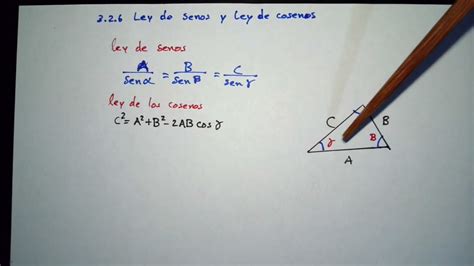 2.2.6 Ley de senos y Ley de cosenos
ley de senos
A/sen α = B/sen β = C/sen γ
ley de los cosenos
C² = A² + B² - 2AB cos γ
C
B
γ
β
A